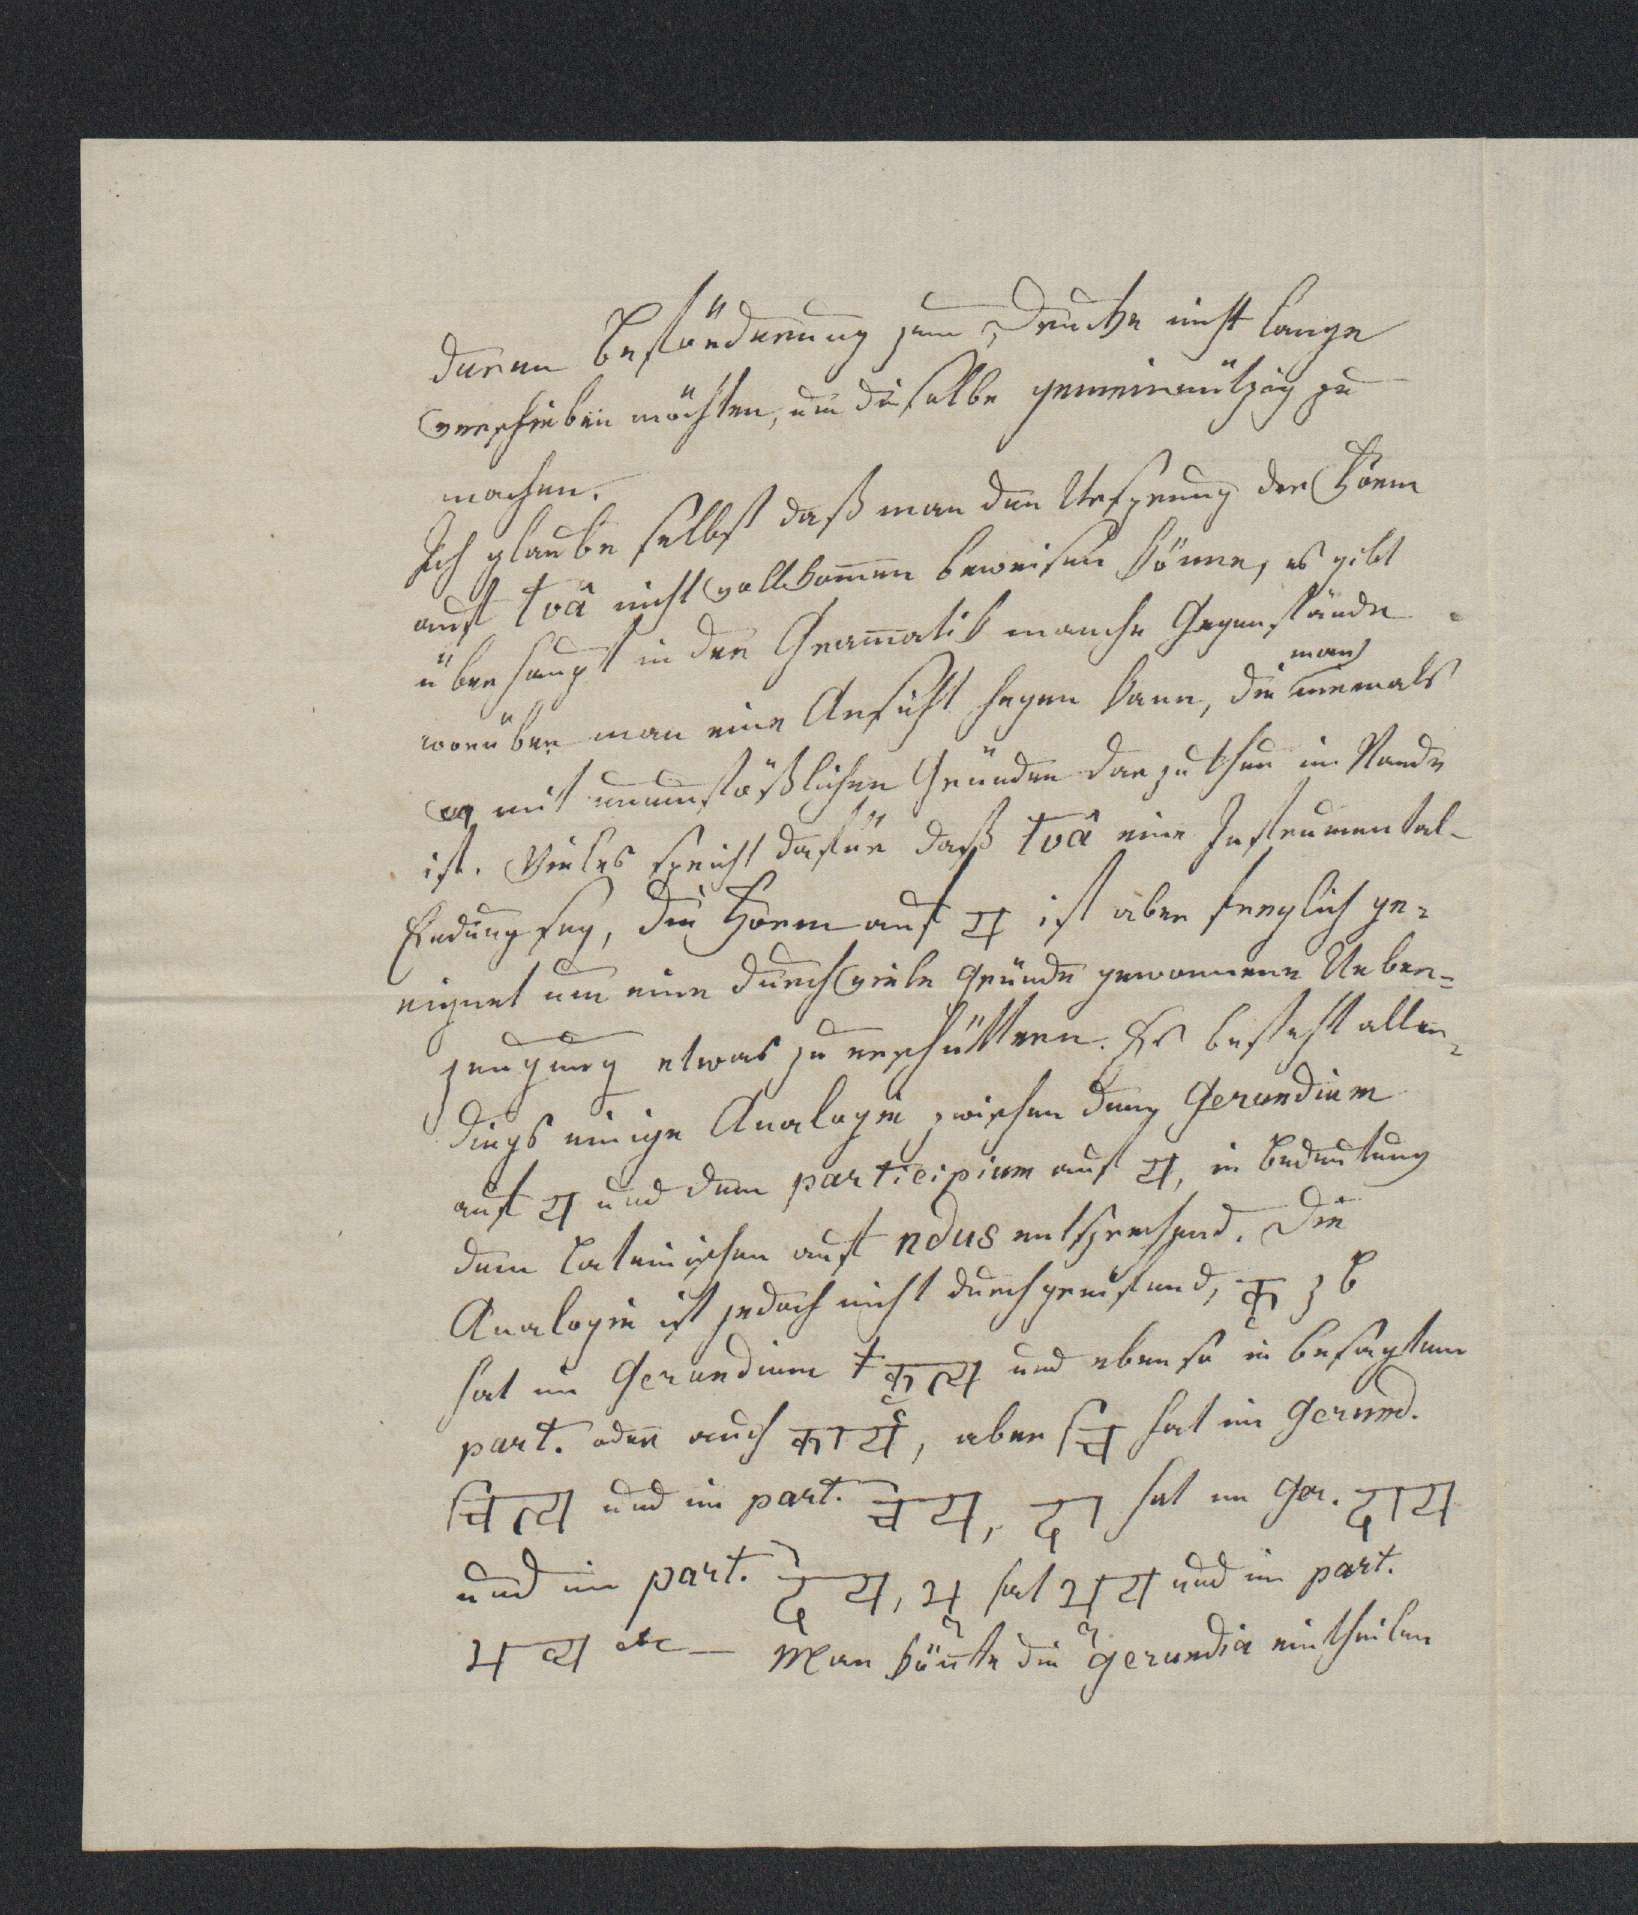 deren Beförderung zum Drucke nicht lange
verschieben möchten, um dieselbe gemeinnützig zu
machen.
Ich glaube selbst daß man den Ursprung der Form
auf tvâ nicht vollkom̄en beweisen könne, es gibt
überhaupt in der Gram̄atik manche Gegenstände
worüber man eine Ansicht hegen kann, die man niemals
mit unumstößlichen Gründen darzuthun im Stande
ist. Vieles spricht dafür daß tvâ eine Instrumental-
Endung sey, die Form auf य ist aber freylich ge-
eignet um eine durch viele Gründe gewonnene Ueber-
zeugung etwas zu erschüttern. Es besteht aller-
dings einige Analogie zwischen dem Gerundium
auf य und dem participium auf य, in Bedeutung
dem Lateinischen auf ndus entsprechend. Die
Analogie ist jedoch nicht durchgreifend, कृ z B
hat im Gerundium + कृत्य und ebenso in besagtem
part. oder auch कार्य, aber चि hat im Gerund.
चित्य und im part. चेय, दा hat im Ger. दाय
und im part. देय, भू hat भूय und im part.
भव्य etc — Man kön̄te die gerundia eintheilen